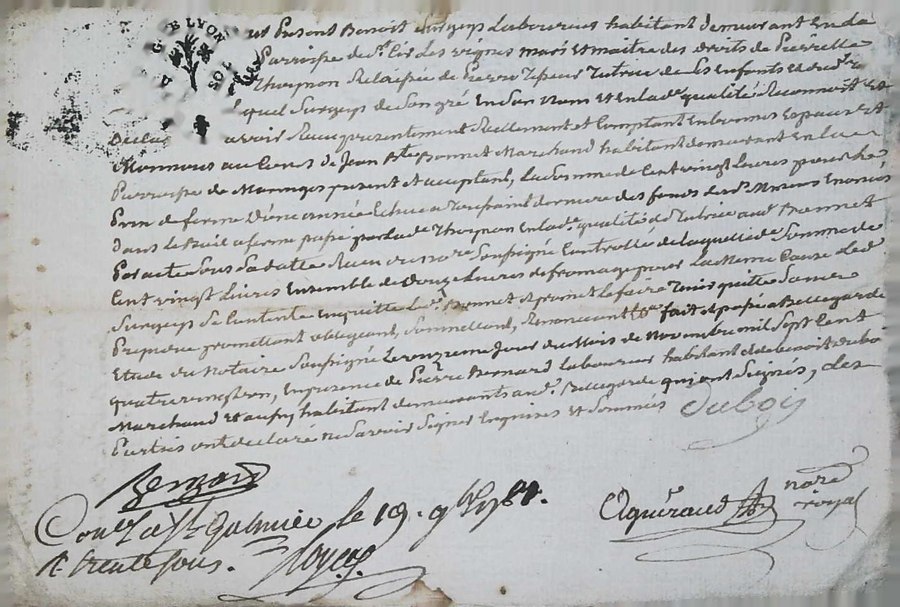 G E LYON
fut Present Benoist Surgeys Laboureur habitant demeurant En la
Parroisse de St Cir Les vignes mary Et maitre des droits de Pierrette
Thoynon Relaissée de Pierre Tutrice de Ses Enfants Et
quel Surgeys de Son gré En Son Nom Et En lade qualité Reconnoit Et
avoir Reçu presentement Reellement et Comptant En bonnes Espaces Et
Monnoies au Cours de Jean Bte Bonnet Marchand habitant demeurant En la
Parroisse de Maringes present Et acceptant, La Somme de Cent vingt Livres pour
Prix de ferme D'une année Echue a Toussaint derniere des fonds
Dans le Bail a ferme passé par lade Thoynon En lade qualité de Tutrice aud Bonnet
Par acte Sous Sa datte Reçu du notre Soussigné Controllé de laquelle de Somme de
Cent vingt Livres Ensemble de Douze Livres de fromage pour La Meme Cause Led
Surgeys Se Contente Enquitte led Bonnet Et promet le faire Tenir quitte
promettant obligeant, Soumettant, Renonceant fait Et passé a Bellegarde
Etude du Notaire Soussigné Le onzieme Jour du Mois de Novembre mil Sept Cent
quatrevingt un, En presence de Pierre Bernard Laboureur habitant de Benoit Duboi
Marchand Et habitant demeurants aud Bellegarde qui ont Signés, Les
Parties ont declaré ne Savoir Signer Enquises Et Sommées Duboy
Bernard
Conllé a St Galmier le 19. 9bre 1781.
R trente sous.
nore
royal